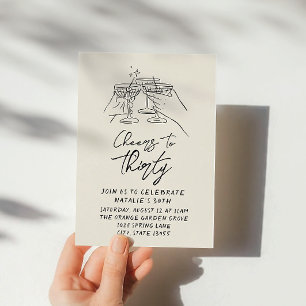 Cheers to
thirty
JOIN US TO CELEBRATE
NATALIE'S 30TH
SATURDAY, AUGUST 12 AT 11AM
THE ORANGE GARDEN GROVE
1028 SPRING LANE
CITY STATE 13455